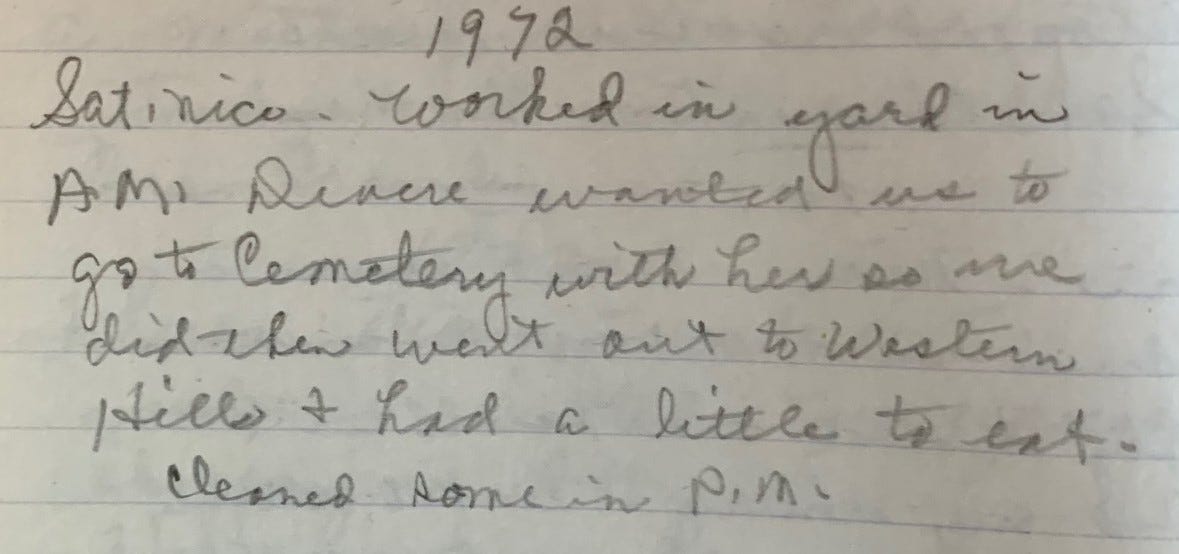 1972
Sat. nice. Worked in yard in
A.M. Devere wanted us to
go to Cemetery with her so we
did then went out to Western
Hills & had a little to eat.
cleaned some in P.M.